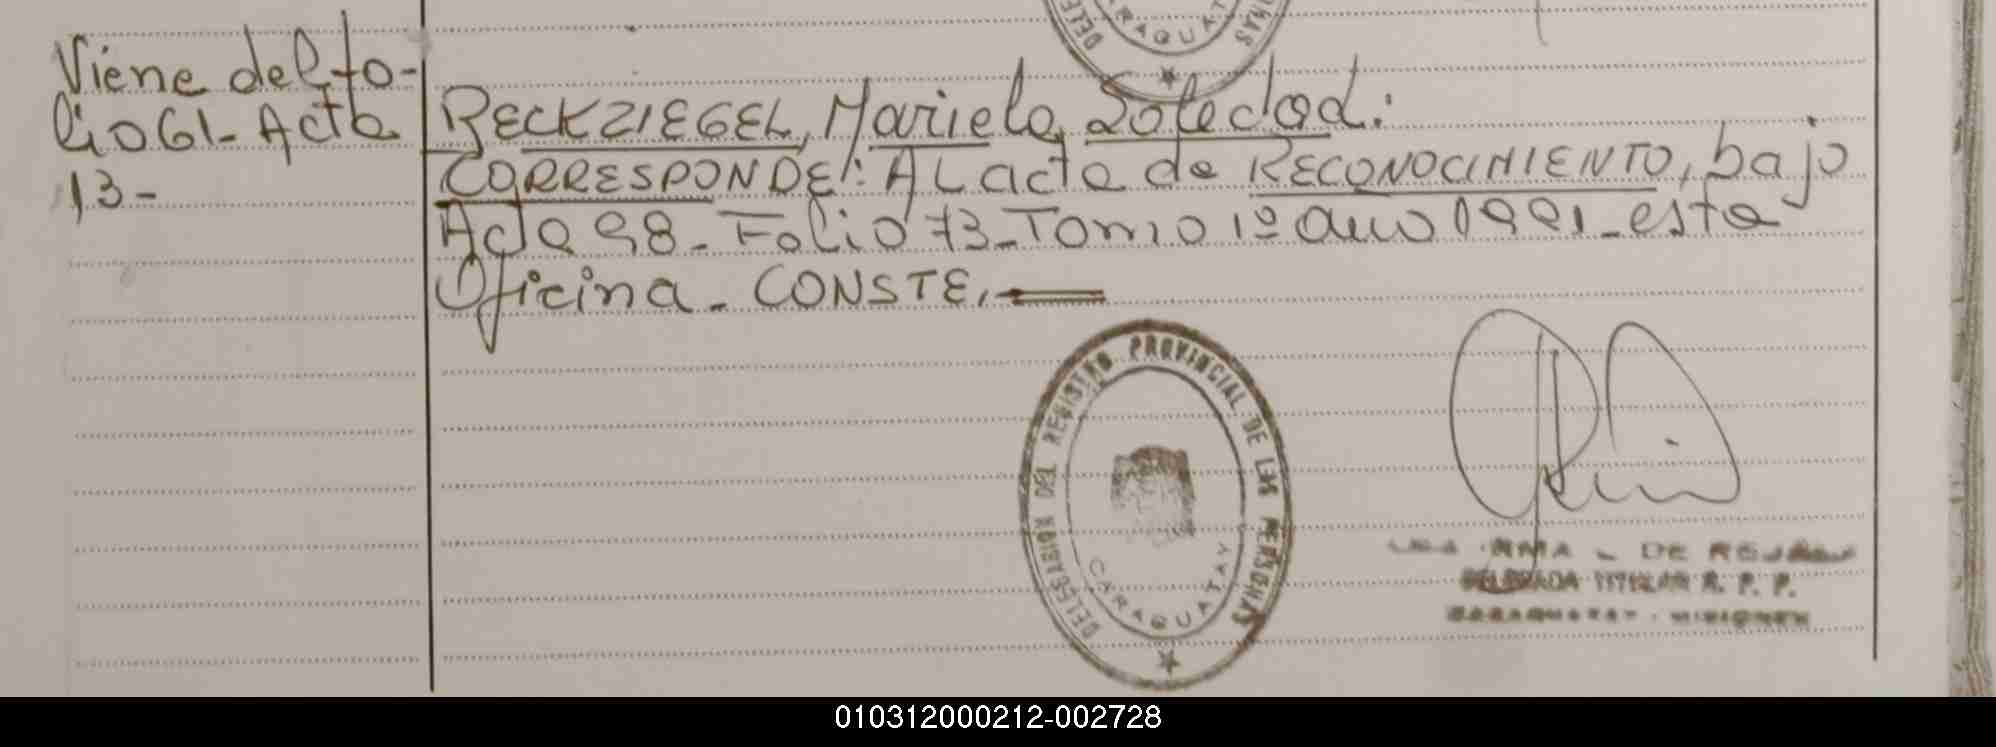 Viene del fo-
lio 61- Acta
13-
RECKZIEGEL, Mariela Soledad:
CORRESPONDE: AL acta de RECONOCIMIENTO, bajo
Acta 98- Folio 73- Tomo 1º año 1991- esta
Oficina- CONSTE.
CARAQUAT
DELEGACION DEL REGISTRO PROVINCIAL DE LAS PERSONAS
CARAGUATAY
IRMA DE ROJAS
DELEGADA TITULAR R. P. P.
CARAGUATAY - MISIONES
010312000212-002728